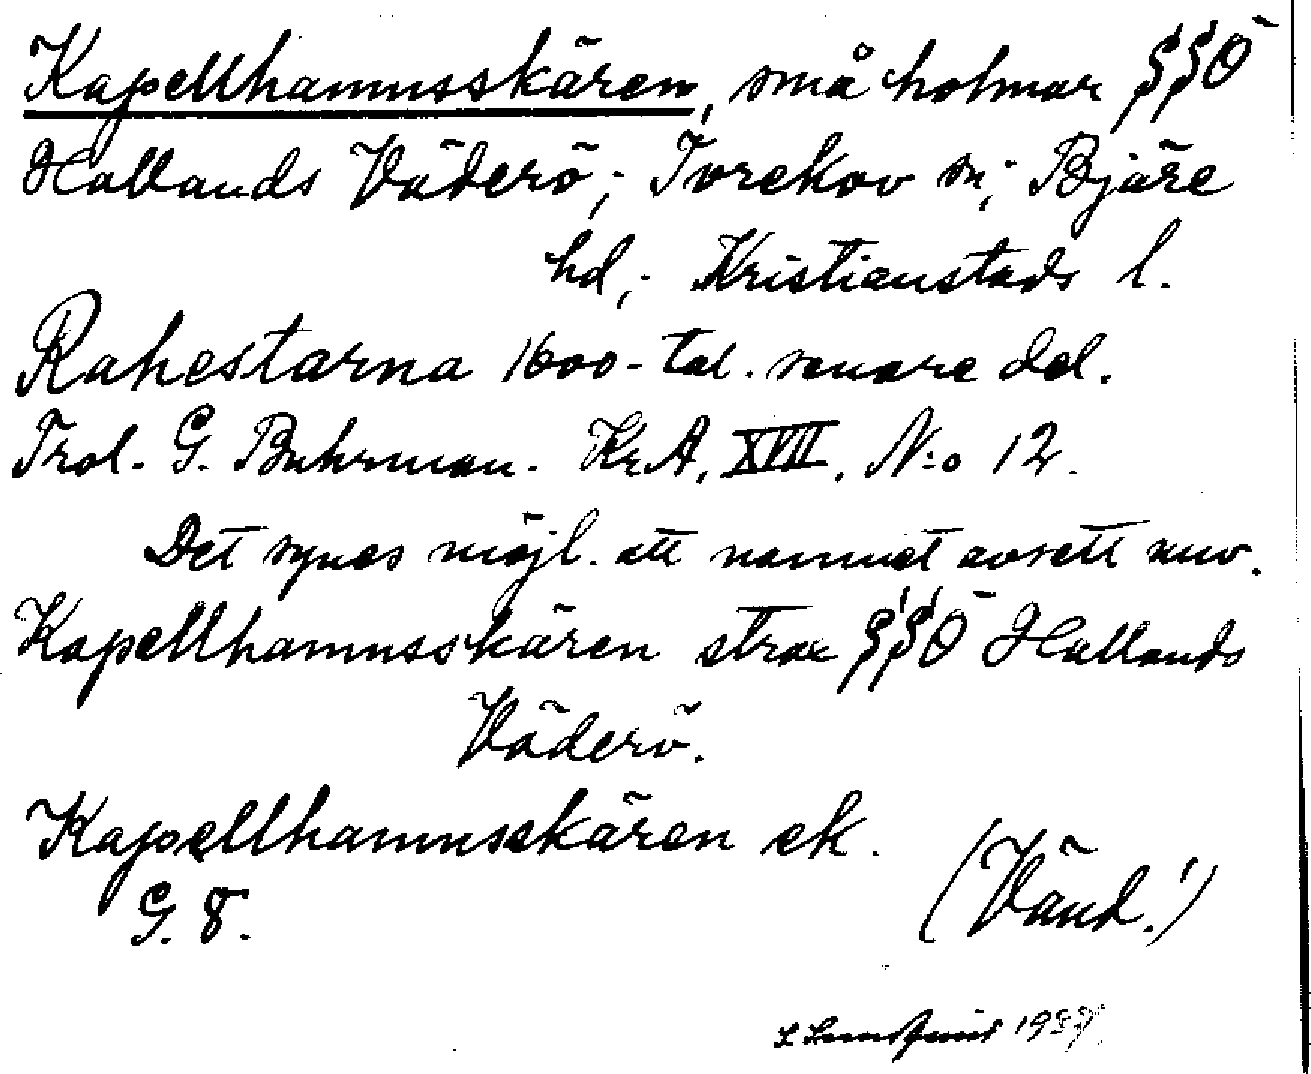 Kapellhamnsskären, små holmar SSÖ
Hallands Väderö; Torekov sn; Bjäre
hd; Kristianstads l.
Rahestarna 1600-tal. senare del.
Trol. G. Buhrman. Kr.A. XVII, N:o 12.
Det synes möjl. att namnet avsett nuv.
Kapellhamnsskären strax SSÖ Hallands
Väderö.
Kapellhamnsskären ek.
G. 8.
(Vänd!)